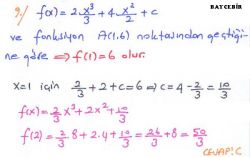 9/ f(x) = 2.x³/3 + 4.x²/2 + c
BAYCEBİR
ve fonksiyon A(1,6) noktasından geçtiği-
ne göre ⇒ f(1) = 6 olur.
x=1 için 2/3 + 2 + c = 6 ⇒ c = 4 - 2/3 = 10/3
f(x) = 2/3 x³ + 2x² + 10/3
f(2) = 2/3 . 8 + 2.4 + 10/3 = 26/3 + 8 = 50/3
CEVAP: C